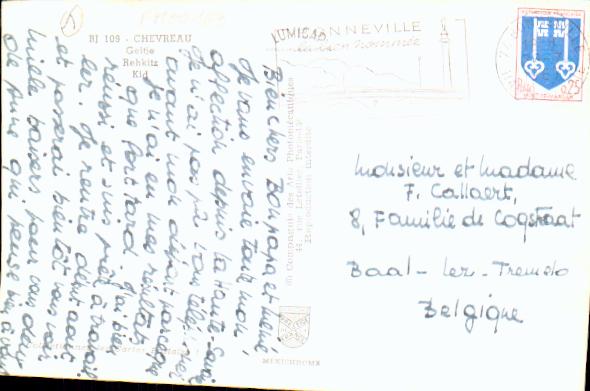 RJ 109 - CHEVREAU
Geitje
Rehkitz
Kid
LUMIGAD
BONNEVILLE
Bien chers Bonpapa et mémé
Je vous envoie toute mon
affection depuis la Haute-Savoie
Je n'ai pas pu vous télé
avant mon départ parceque
je n'ai eu mes résultats
que fort tard. J'ai bien
réussi et suis prête à travail
ler. Je rentre début août
et passerai bientôt vous voir
Mille baisers pour vous deux
de Anne qui pense bien à vous
Compagnie des Arts Photomécaniques
44, rue Letellier Paris-15e
Reproduction interdite
MEXICHROME
0,25
Monsieur et Madame
F. Callaert,
8, Familie de Cogstraat
Baal - Lez - Tremelo
Belgique